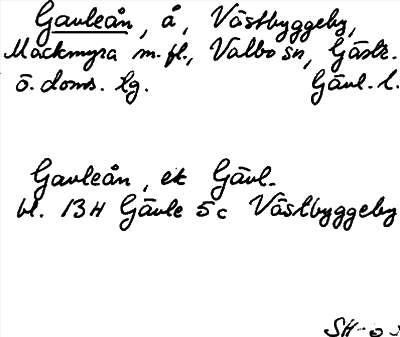 Gavleån, å, Västbyggeby,
Mackmyra m.fl., Valbo sn, Gästr.
ö. doms. lg. Gävl. l.
Gavleån, ek Gävl.
bl. 13H Gävle 5c Västbyggeby